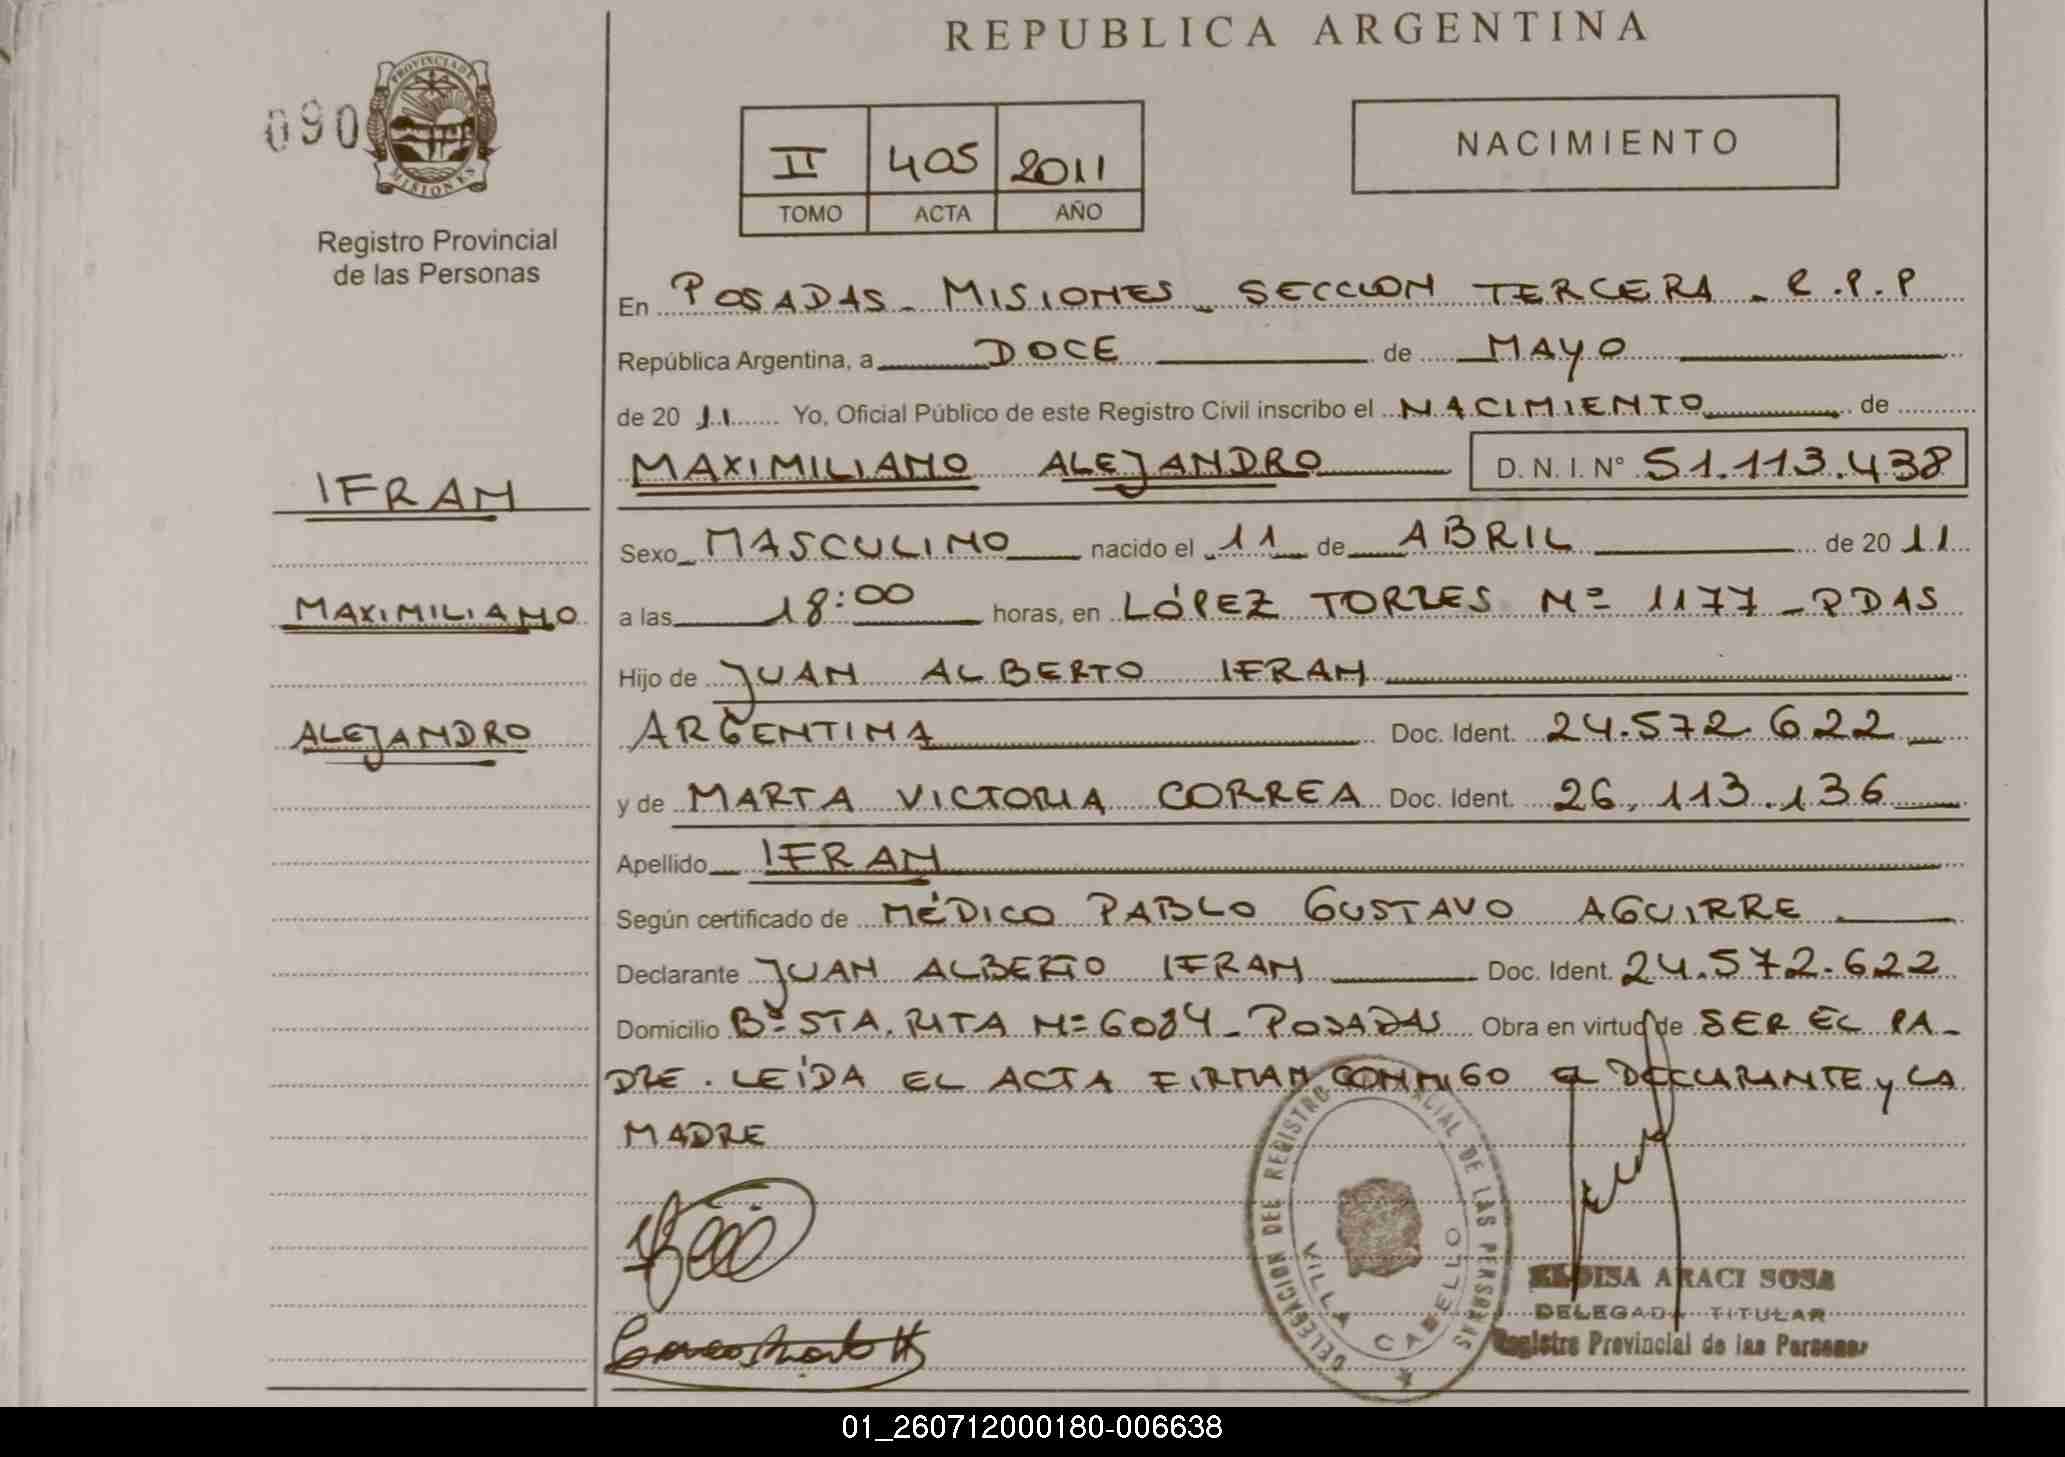 REPUBLICA ARGENTINA
090
PROVINCIA DE
MISIONES
Registro Provincial
de las Personas
II 405 2011
TOMO ACTA AÑO
NACIMIENTO
En POSADAS - MISIONES - SECCION TERCERA - R.P.P
República Argentina, a DOCE de MAYO
de 20 11 Yo, Oficial Público de este Registro Civil inscribo el NACIMIENTO de
MAXIMILIANO ALEJANDRO D. N. I. N° 51.113.438
IFRAN
MAXIMILIANO
ALEJANDRO
Sexo MASCULINO nacido el 11 de ABRIL de 20 11
a las 18:00 horas, en LÓPEZ TORRES Nº 1177 - PDAS
Hijo de JUAN ALBERTO IFRAN
ARGENTINA Doc. Ident. 24.572.622
y de MARTA VICTORIA CORREA Doc. Ident. 26.113.136
Apellido IFRAN
Según certificado de MÉDICO PABLO GUSTAVO AGUIRRE
Declarante JUAN ALBERTO IFRAN Doc. Ident. 24.572.622
Domicilio Bº STA. RITA Nº 6084 - POSADAS Obra en virtud de SER EL PA-
DRE. LEÍDA EL ACTA FIRMAN CONMIGO EL DECLARANTE y LA
MADRE
DELEGACION DEL REGISTRO PROVINCIAL DE LAS PERSONAS
VILLA CABELLO
ELOISA ARACI SOSA
DELEGADA TITULAR
Registro Provincial de las Personas
01_260712000180-006638